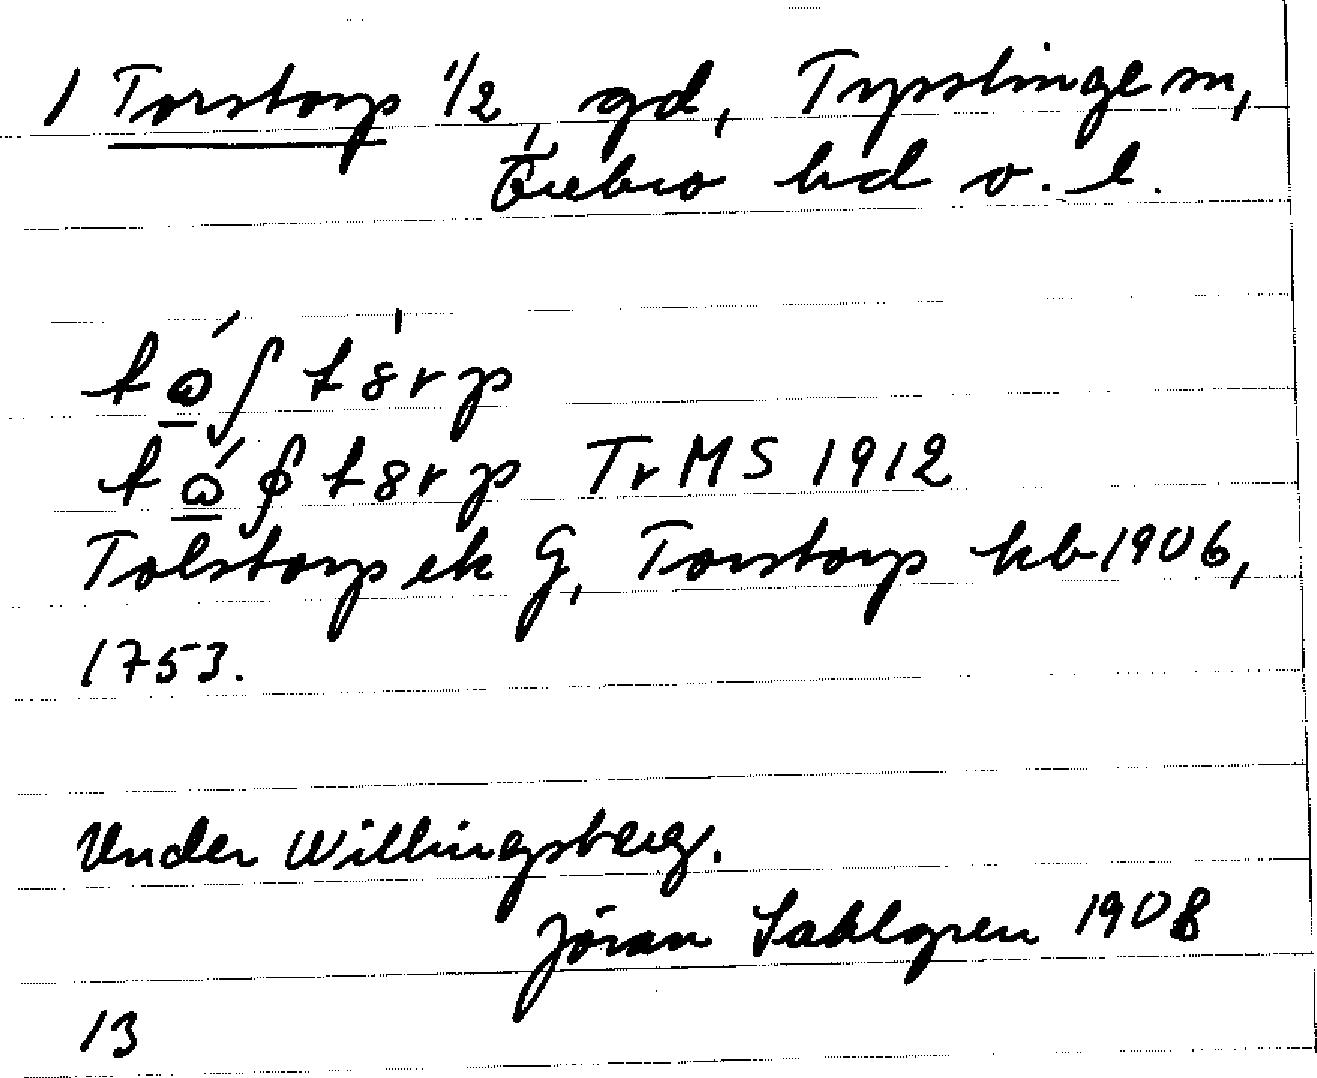 1 Torstorp 1/2, gd, Tysslinge sn,
Örebro hd o. l.
Tr MS 1912
Tolstorp ek G, Torstorp kb 1906,
1753.
Under Willingsberg.
Jöran Sahlgren 1908
13